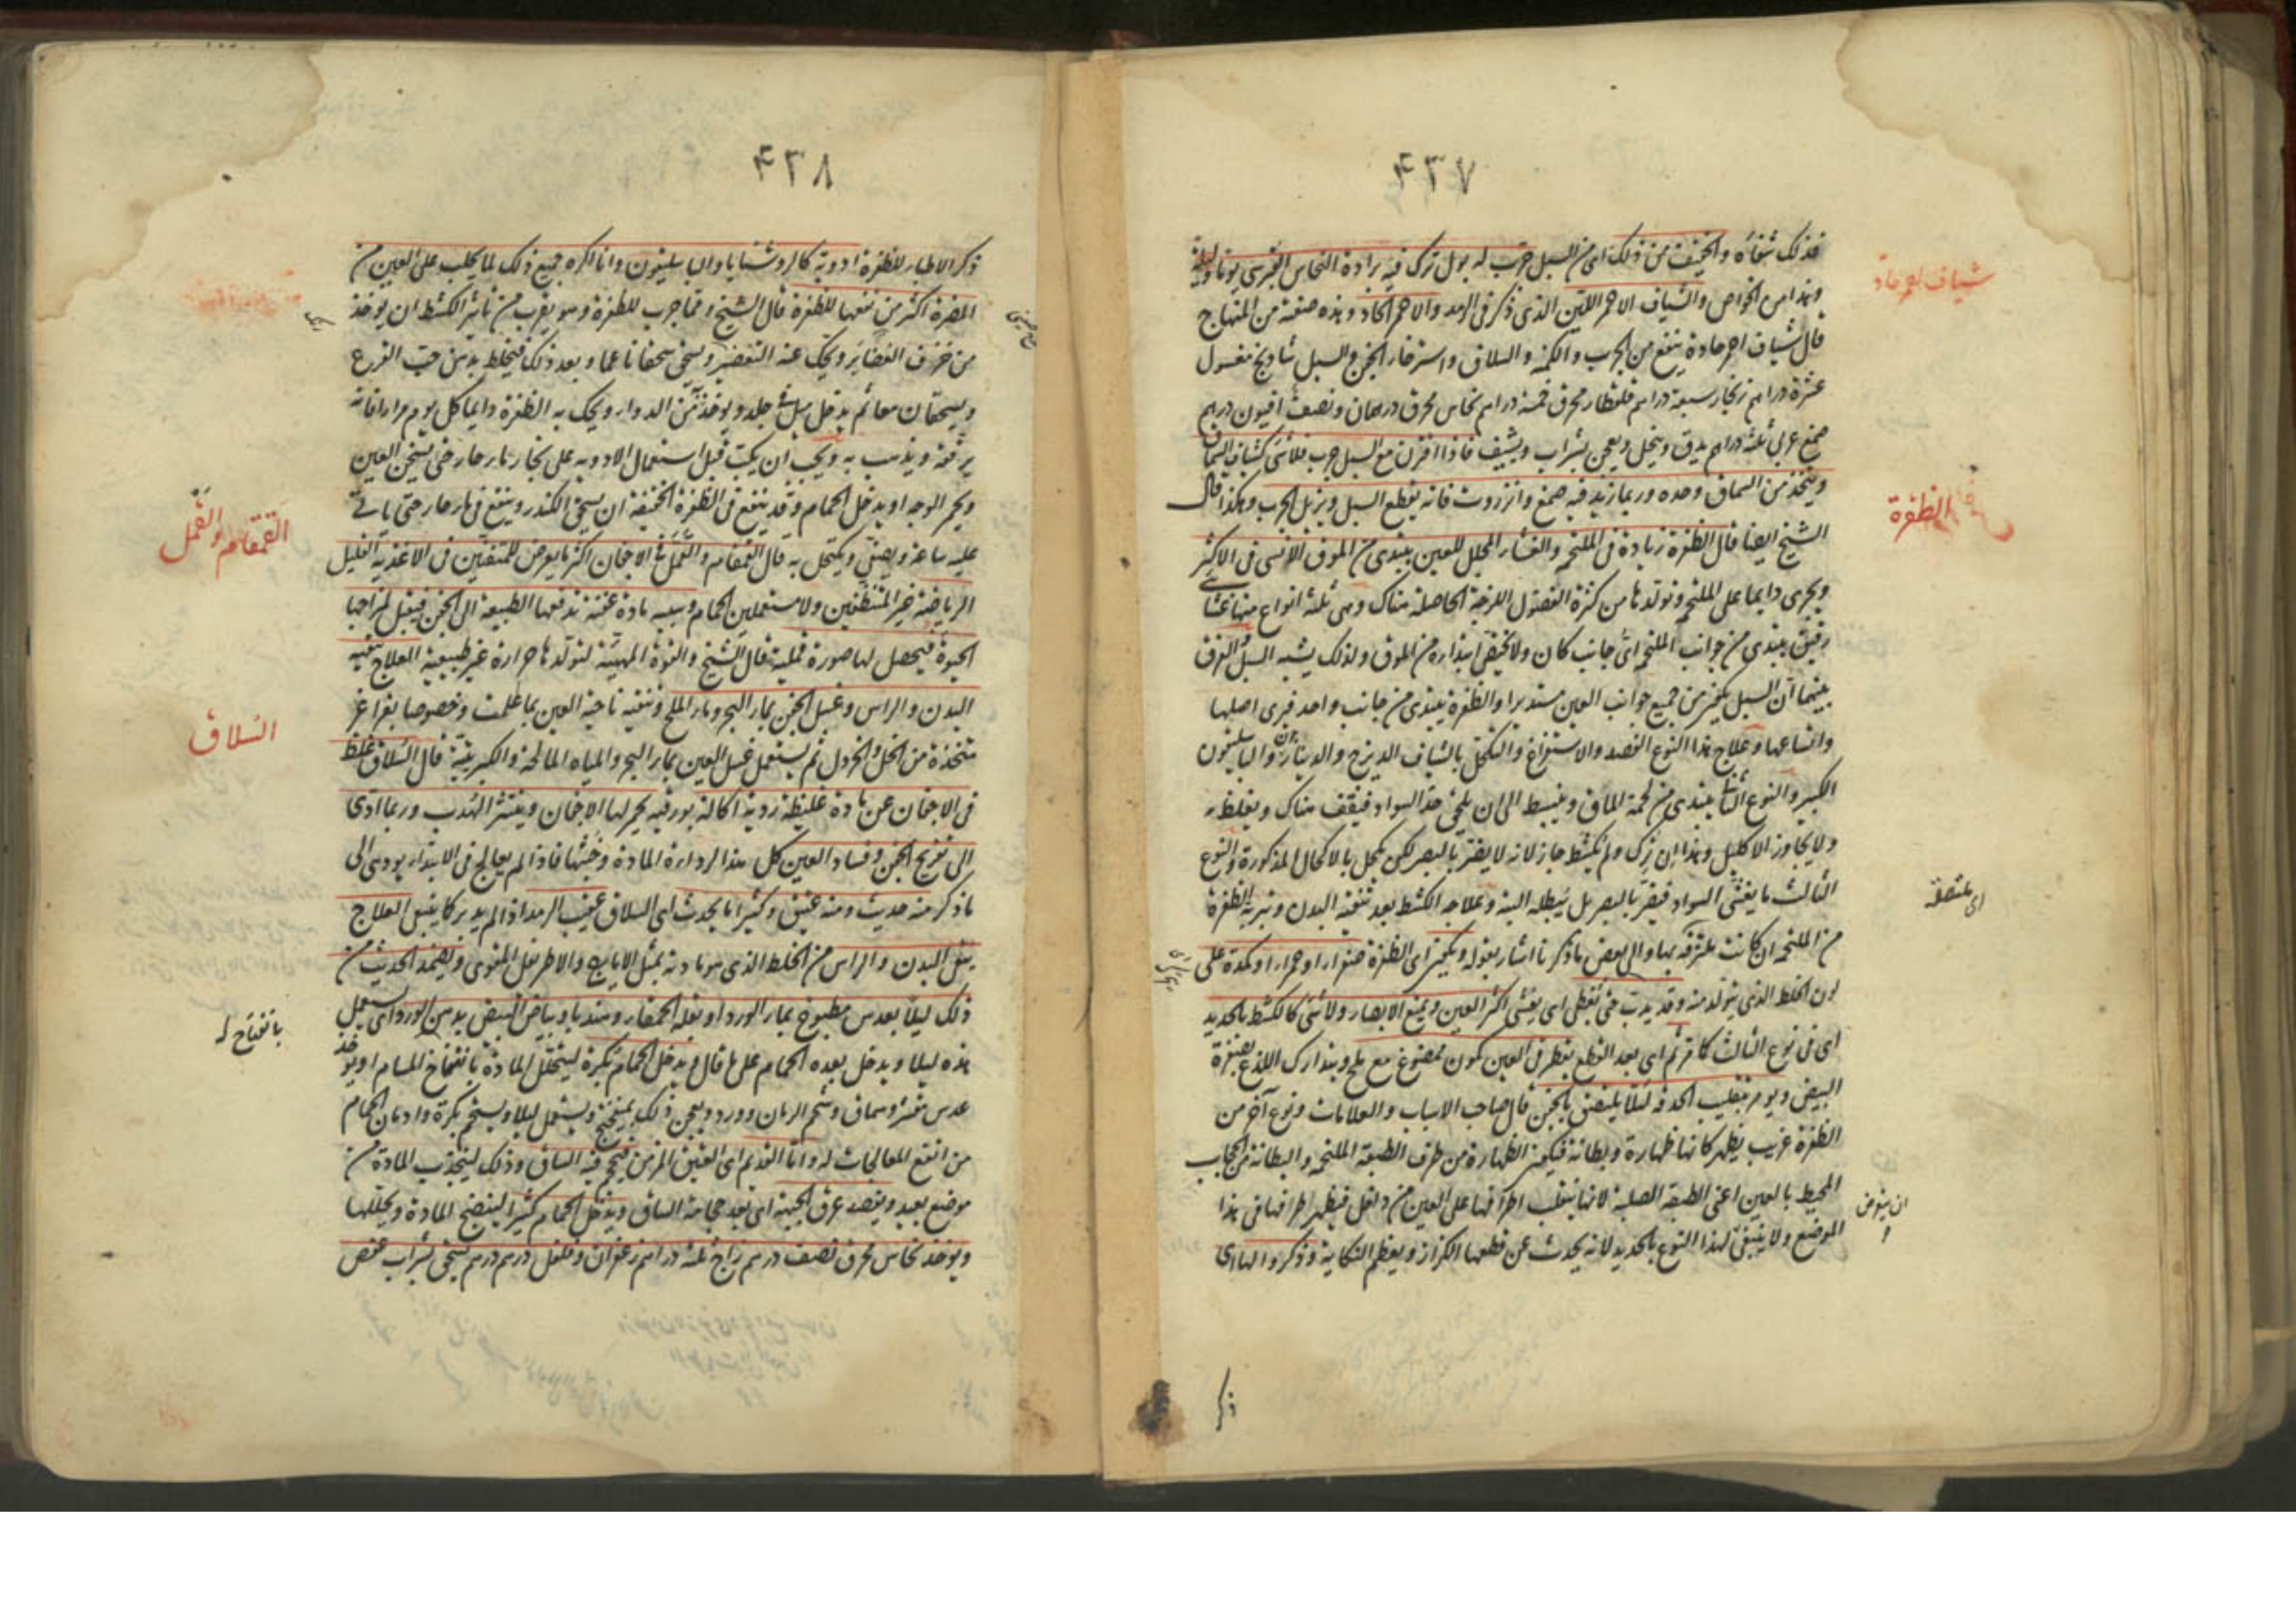 ۴۳۷
فذلك شفاؤه والخفيف من ذلك اى من السبل جرب له بول ترك فيه برادة النحاس القبرسى يوما وليلة
وهذا من الخواص والشياف الاحمر اللين الذى ذكر فى الرمد والاحمر الحاد وهذه صنعته من المنهاج
قال شياف احمر حادة ينفع من الجرب والكمنة والسلاق واسترخاء الجفن والسبل شاذنج مغسول
عشرة دراهم زنجار سبعة دراهم قلقطار محرق خمسة دراهم نحاس محرق درهمان ونصف افيون درهم
صمغ عربى ثلثة دراهم يدق وينخل ويعجن بشراب ويشيف فاذا اقترن مع السبل جرب فلا شئ كشياف السماق
ويتخذ من السماق وحده وربما زيد فيه صمغ وانزروت فانه يقطع السبل ويزيل الجرب وهكذا قال
الشيخ ايضا قال الظفرة زيادة فى الملتحم والغشاء المجلل للعين يبتدى من الموق الانسى فى الاكثر
ويجرى دايما على الملتحم وتولدها من كثرة الفضول اللزجة الحاصلة هناك وهى ثلثة انواع منها غشائى
رقيق يبتدى من جوانب الملتحم اىّ جانب كان ولا يختص ابتداؤه من الموق ولذلك يشبه السبل والفرق
بينهما ان السبل يكون من جميع جوانب العين مستديرا والظفرة يبتدى من جانب واحد فيرى اصلها
واتساعها وعلاج هذا النوع الفصد والاستفراغ والتكحل بالشياف الديزج والدينارجون والباسليقون
الكبير والنوع الثانى يبتدى من لحمة الماق وينبسط الى ان يلحق حد السواد فيقف هناك ويغلظ
ولا يجاوز الاكليل وهذا ان ترك ولم يكشط جاز لانه لا يضر بالبصر لكن يكحل بالاكحال المذكورة والنوع
الثالث ما يغشى السواد فيضر بالبصر بل يبطله البتة وعلاجه الكشط بعد تنقية البدن وتبرية الظفرة
من الملتحم ان كانت ملتزقة بها والى بعض ما ذكرنا اشار بقوله ويكون اى الظفرة صفراء او حمراء او كمدة على
لون الخلط الذى يتولد منه وقد يدبّ حتى تغطى اى يغشى اكثر العين ويمنع الابصار ولا شئ كالكشط بالحديد
اى فى نوع الثالث كما مر ثم اى بعد القطع يقطر فى العين كمون ممضوغ مع ملح ويتدارك اللذع بصفرة
البيض ويؤمر بتقليب الحدقة لئلا يلتصق بالجفن قال صاحب الاسباب والعلامات ونوع آخر من
الظفرة غريب يظهر كانها ظهارة وبطانة فيكون الظهارة من طرف الطبقة الملتحم والبطانة من الحجاب
المحيط بالعين اعنى الطبقة الصلبة لانها ينقلب اطرافها على العين من داخل فيظهر اطرافها فى هذا
الموضع ولا ينبغى لهذا النوع بالحديد لانه يحدث عن قطعها الكزاز ويعظم النكاية وذكروا لها اى
ذكر
شياف احمر حاد
الظفرة
اى ملتصقة
ان يتعرض
۴۳۸
ذكر الاطباء للظفرة ادوية كالروشنايا والباسليقون وانا اكره جميع ذلك لما يجلب على العين من
المضرة اكثر من نفعها للظفرة قال الشيخ ومما جرب للظفرة وهو يقرب من تأثير الكشط ان يؤخذ
من خزف الغضاير ويحك عنه التغضير ويسحق سحقا ناعما وبعد ذلك فيخلط بدهن حب القرع
ويسحقان معا ثم يدخل ميل فى جلد ويؤخذ من الدواء ويحك به الظفرة دايما كل يوم مرارا فانه
يرققه ويذهب به ويجب ان يكب قبل استعمال الادوية على بخار ماء حار حتى يسخن العين
ويحمر الوجه او يدخل الحمام وقد ينفع فى الظفرة الخفيفة ان يسحق الكندر وينقع فى ماء حار حتى ياتى
عليه ساعة ويصفى ويكتحل به قال القمقام والقمل فى الاجفان اكثر ما يعرض للمتفننين فى الاغذية القليل
الرياضة غير المتنظفين ولا مستعملين الحمام وسببه مادة عفنة تدفعها الطبيعة الى الجفن فيقبل مزاجها
الحيوة فيحصل لها صورة قملية قال الشيخ والقوة المهيئة لتولدها حرارة غير طبيعية العلاج تنقية
البدن والراس وغسل الجفن بماء البحر وماء الملح وتنقية ناحية العين بما علمت وخصوصا بغراغر
متخذة من الخل والخردل ثم يستعمل غسل العين بماء البحر والمياه المالحة والكبريتية قال السلاق غلظ
فى الاجفان عن مادة غليظة ردية اكالة بورقية يحمر لها الاجفان وينتثر الهدب وربما ادّى
الى تقريح الجفن وفساد العين كل هذا لرداءة المادة وخبثها فاذا لم يعالج فى الابتداء يودى الى
ما ذكر منه حديث ومنه عتيق وكثيرا ما يحدث اى السلاق عقيب الرمد اذا لم يدبر كما ينبغى العلاج
ينقى البدن والراس من الخلط الذى هو مادته بمثل الايارج والاطريفل المقوى ويضمد الحديث من
ذلك ليلا بعدس مطبوخ بماء الورد او بقلة الحمقاء وهندبا وبياض البيض بدهن الورد اى يستعمل
هذه ليلا ويدخل بعده الحمام على ما قال ويدخل الحمام بكرة ليتحلل المادة بانفتاخ المسام او يؤخذ
عدس مقشر وسماق وشحم الرمان وورد ويعجن ذلك بميفختج ويستعمل ليلا ويستحم بكرة وادمان الحمام
من انفع المعالجات له واما القديم اى العتيق المزمن فيحجم فيه الساق وذلك لينجذب المادة من
موضع بعيد ويفصد عرق الجبهة اى بعد حجامة الساق ويدخل الحمام كثيرا لينضج المادة ويحللها
ويؤخذ نحاس محرق نصف درهم زاج ثلثة دراهم زعفران وفلفل درهم درهم يسحق بشراب عفص
القمقام والقمل
السلاق
بانفتاح له